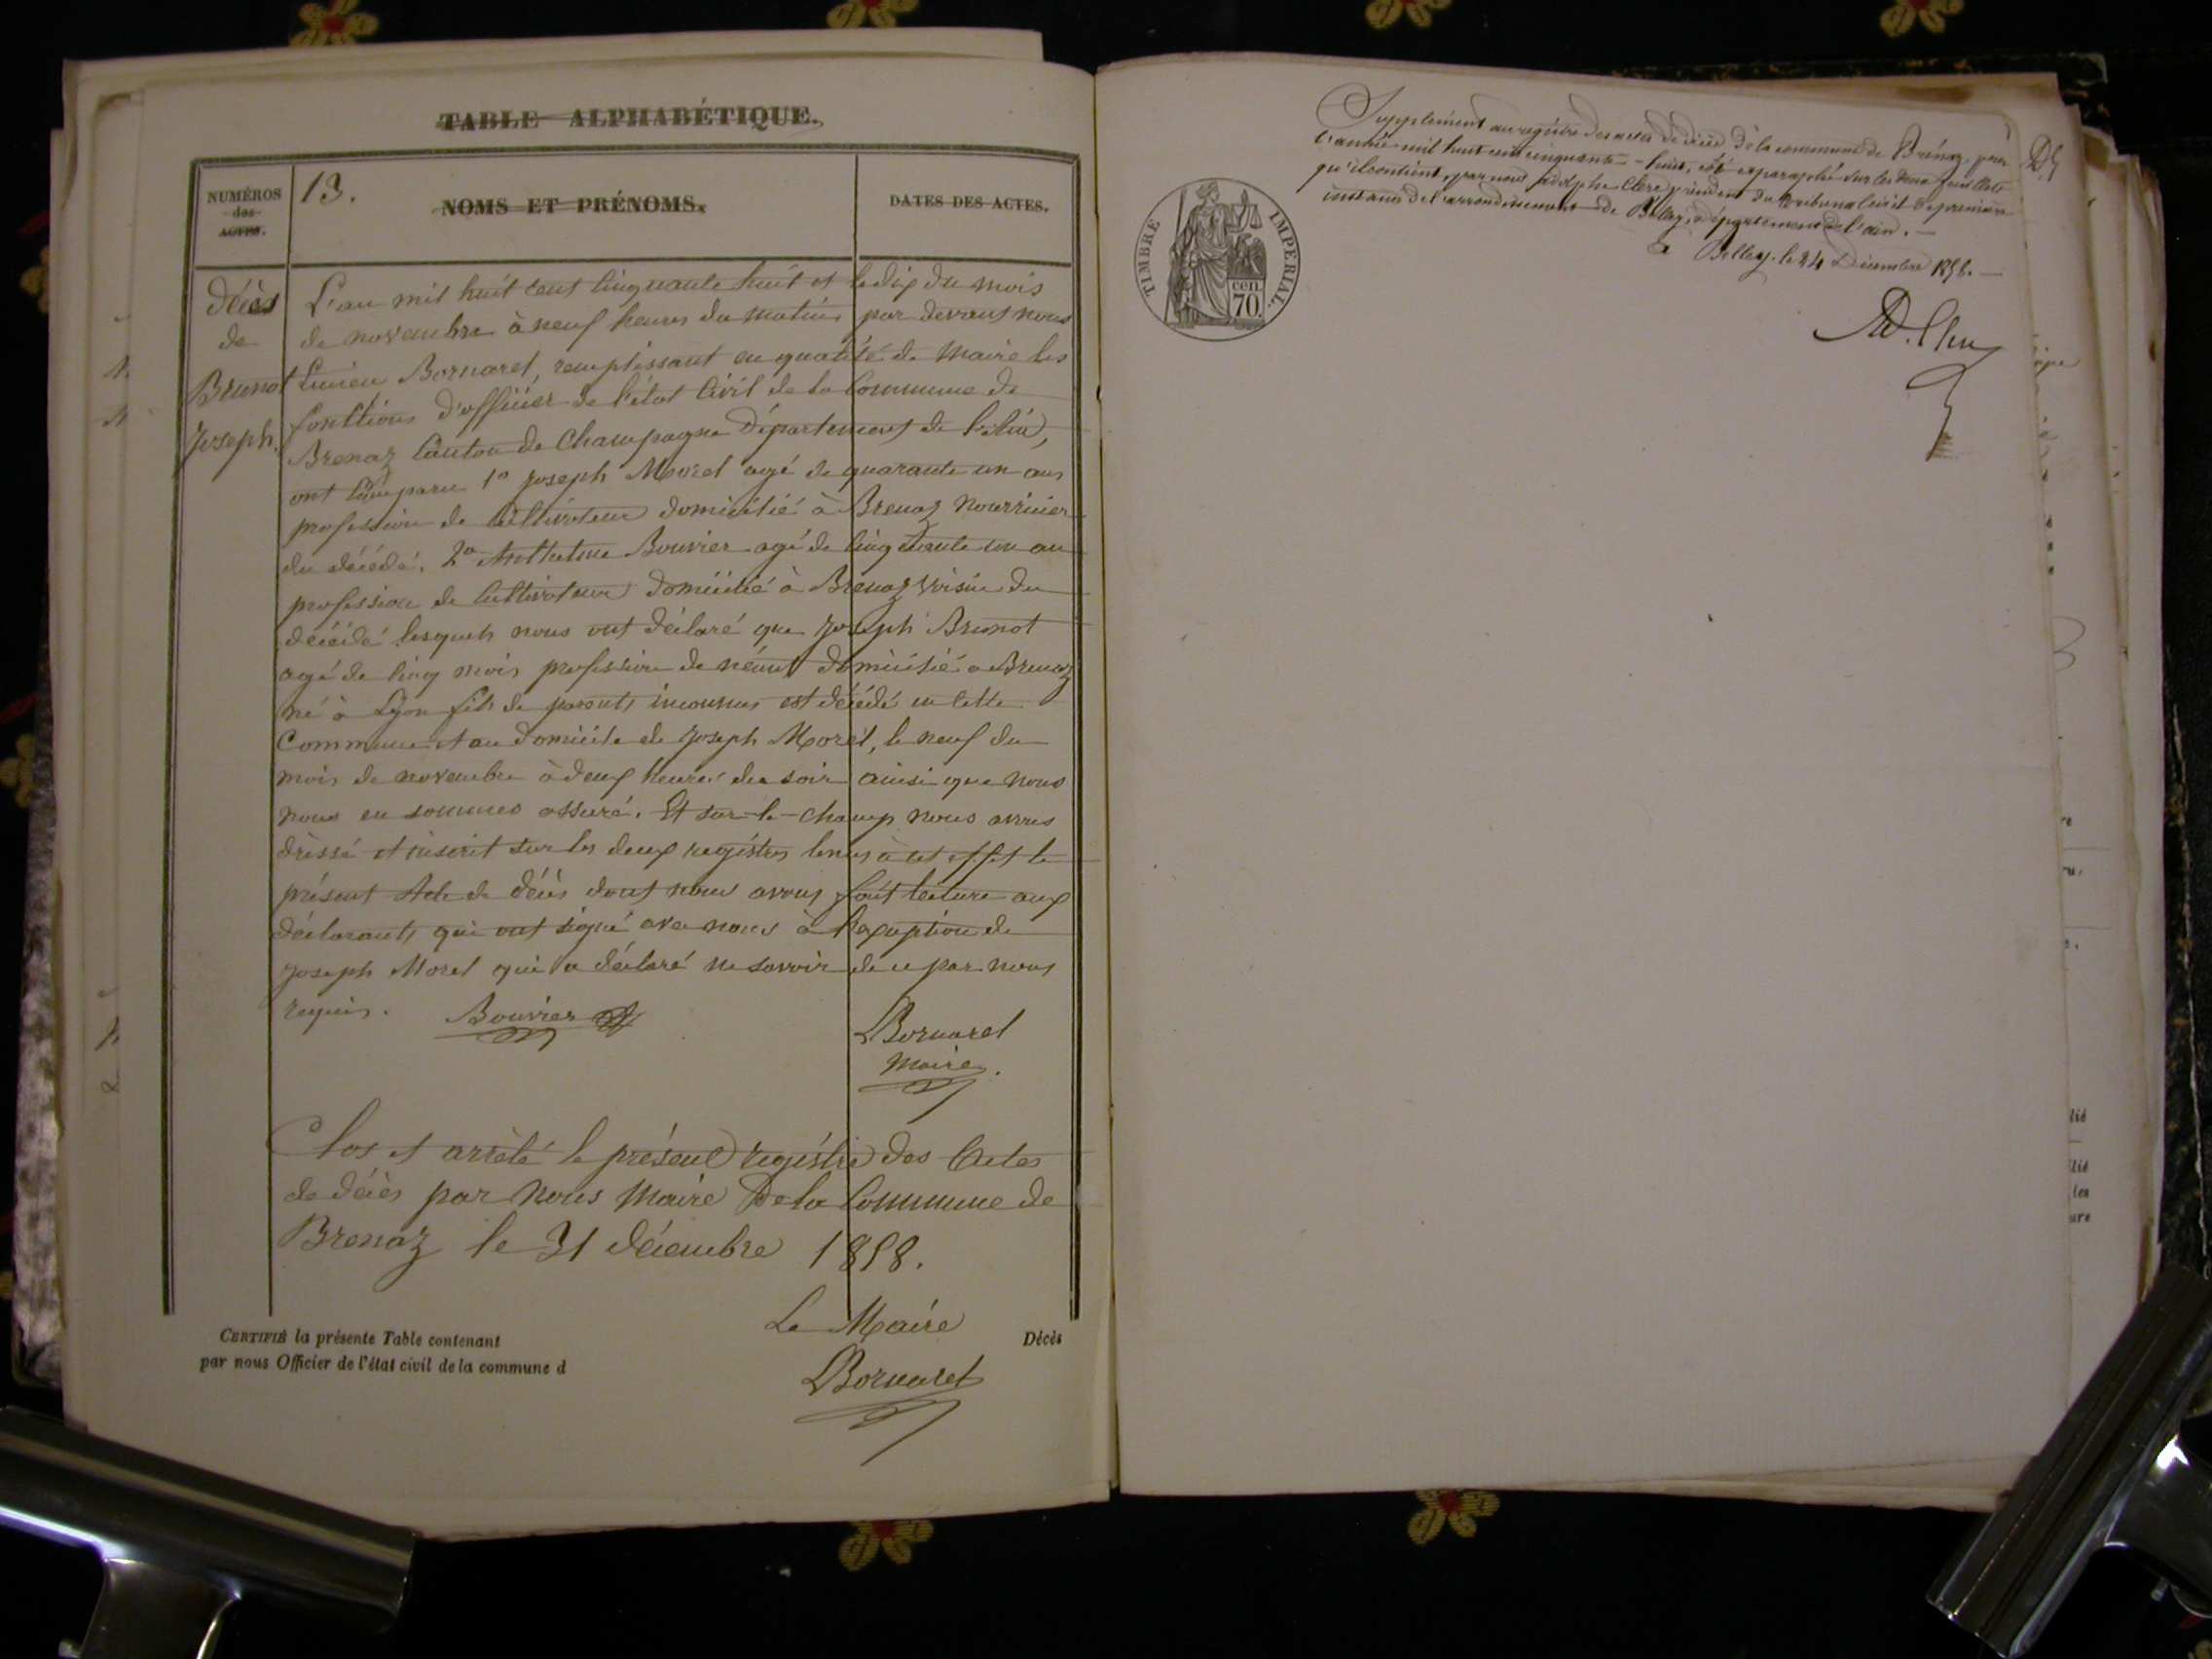 TABLE ALPHABÉTIQUE.
NUMÉROS
des
ACTES.
13.
NOMS ET PRÉNOMS.
DATES DES ACTES.
Décès
de
Brunot
Joseph.
L'an mil huit cent cinquante huit et le dix du mois
de novembre à neuf heures du matin par devant nous
Lucien Bornarel, remplissant en qualité de Maire les
fonctions d'officier de l'état Civil de la Commune de
Brenaz Canton de Champagne Département de l'Ain,
ont Comparu 1º Joseph Morel agé de quarante un ans
profession de Cultivateur domicilié à Brenaz Nourricier
du décédé. 2º Anthelme Bouvier agé de Cinquante un an
profession de Cultivateur domicilié à Brenaz voisin du
décédé lesquels nous ont déclaré que Joseph Brunot
agé de Cinq mois profession de néant domicilié a Brenaz
né à Lyon fils de parents inconnus est décédé en Cette
Commune et au domicile de Joseph Morel, le neuf du
mois de novembre à deux heures du soir ainsi que nous
nous en sommes assuré. Et sur-le-champ nous avons
dressé et inscrit sur les deux registres tenus à cet effet le
présent Acte de décès dont nous avons fait lecture aux
déclarants qui ont signé avec nous à l'exception de
Joseph Morel qui a déclaré ne savoir de ce par nous
requis.
Bouvier
Bornarel
Maire.
Clos et arrêté le présent registre des Actes
de décès par Nous Maire De la Commune de
Brenaz le 31 décembre 1858.
Le Maire
Bornarel
CERTIFIÉ la présente Table contenant
Décès
par nous Officier de l'état civil de la commune d
TIMBRE IMPERIAL.
cen.
70.
Supplément au registre des actes de décès de la commune de Brénaz, pour
l'année mil huit cent cinquante-huit, coté et paraphé sur les deux feuillets
qu'il contient, par nous Adolphe Clerc président du tribunal civil de première
instance de l'arrondissement de Belley, département de l'ain.
a Belley, le 24 Décembre 1858.
AD. Clerc